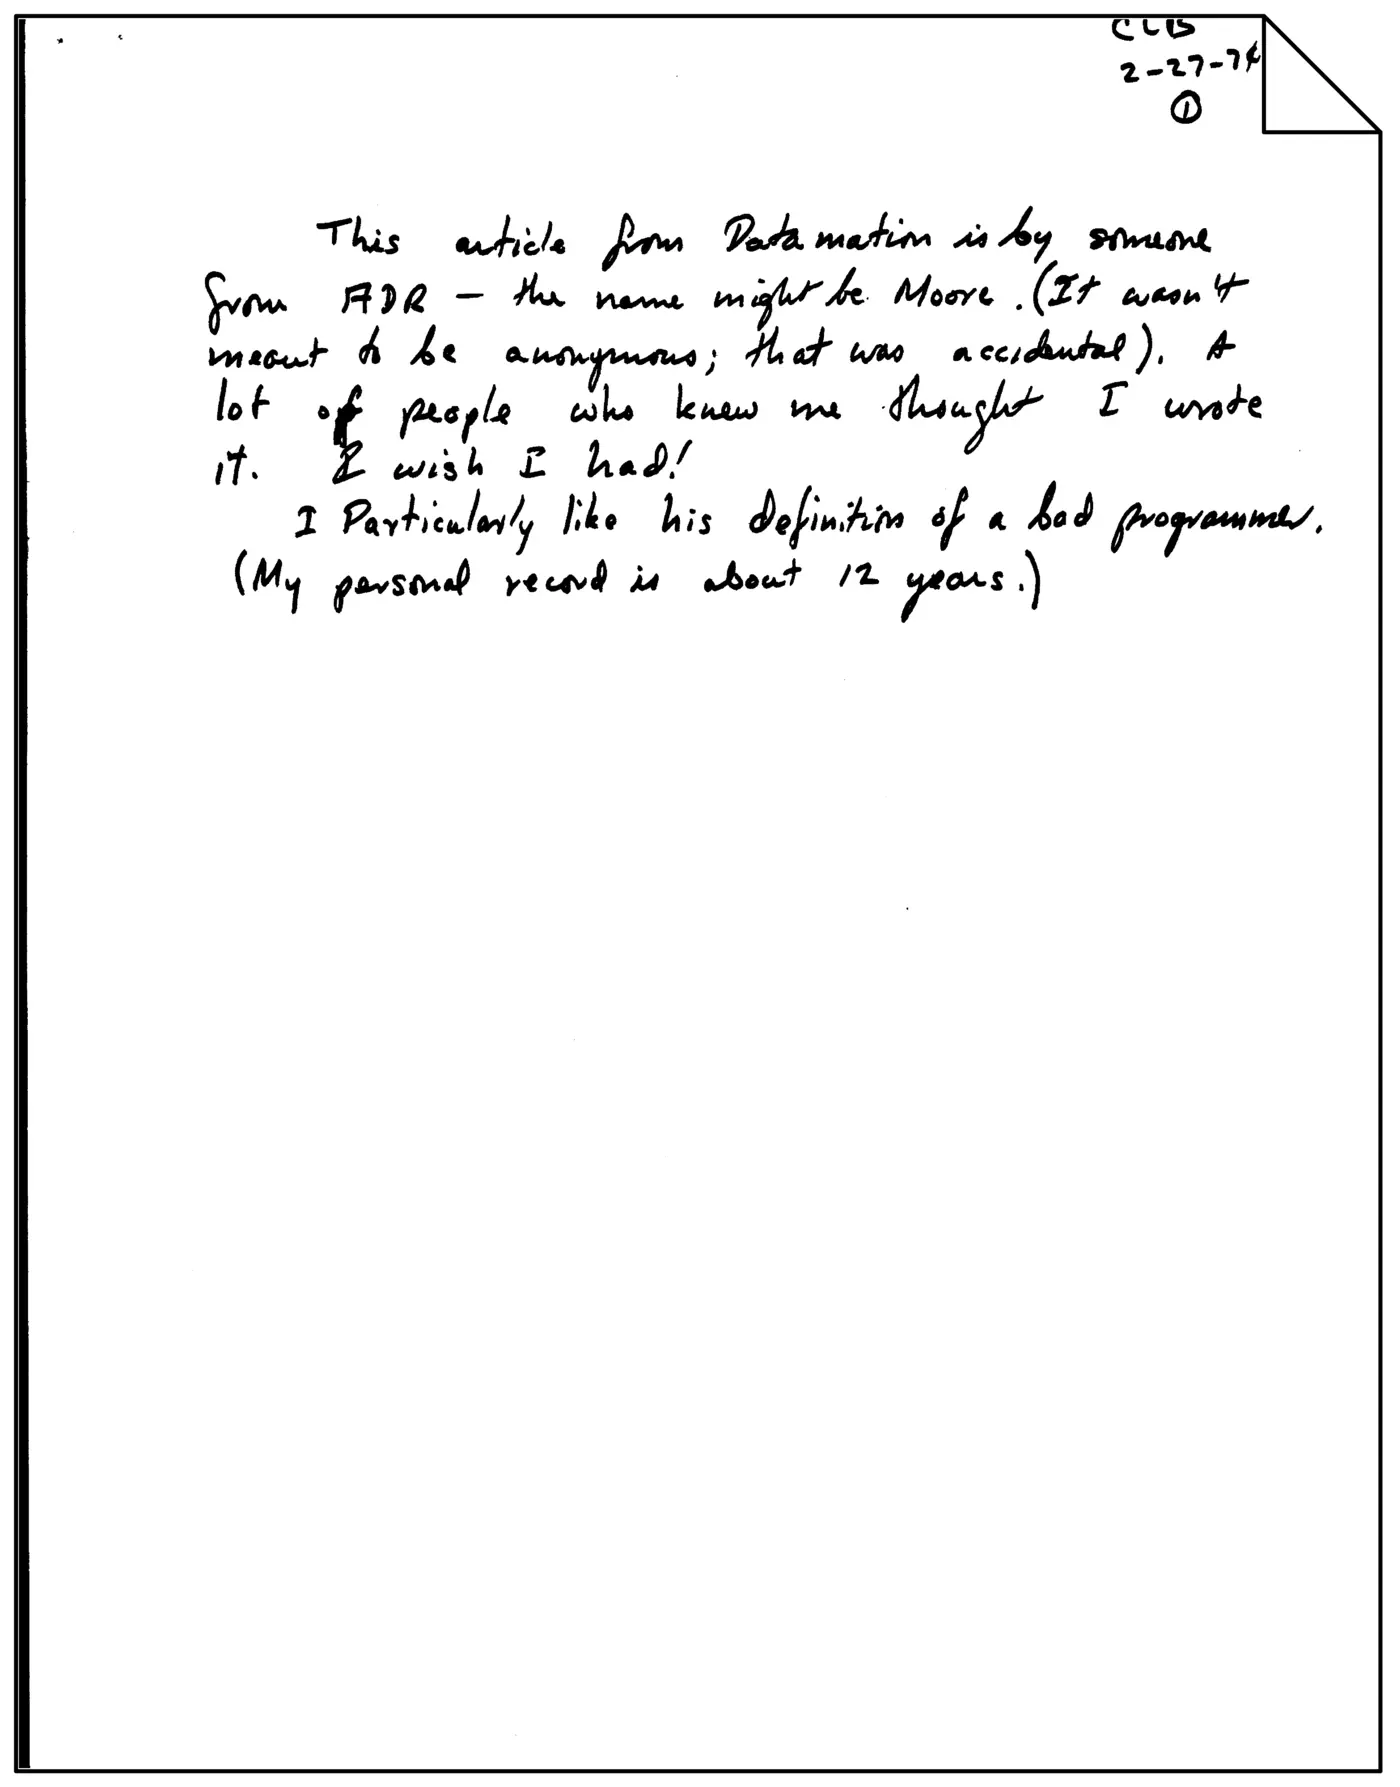 CLB
2-27-74
①
This article from Datamation is by someone
from ADR — the name might be Moore. (It wasn't
meant to be anonymous; that was accidental). A
lot of people who knew me thought I wrote
it. I wish I had!
I Particularly like his definition of a bad programmer.
(My personal record is about 12 years.)